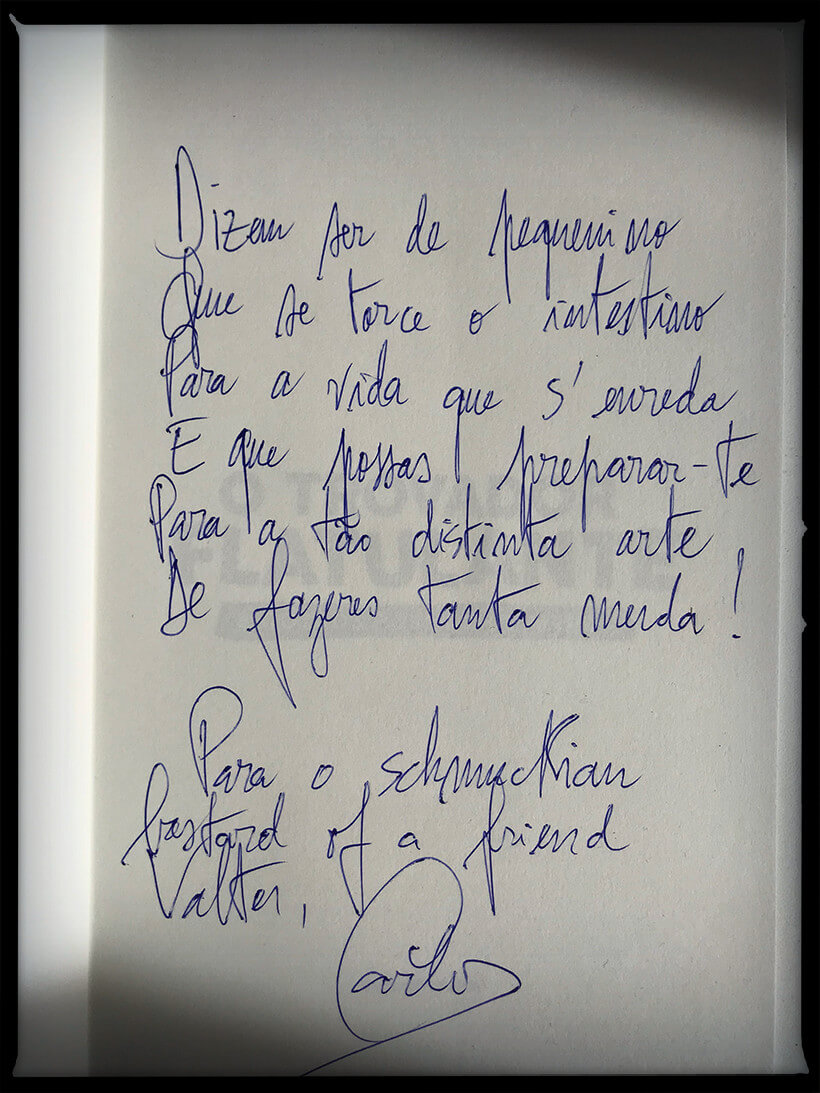 Dizem ser de pequenino
Que se torce o intestino
Para a vida que s'enreda
E que possas preparar-te
Para a tão distinta arte
De fazeres tanta merda!
Para o schmuckian
bastard of a friend
Valter,
Carlos
O TROVADOR
FLATULANTE